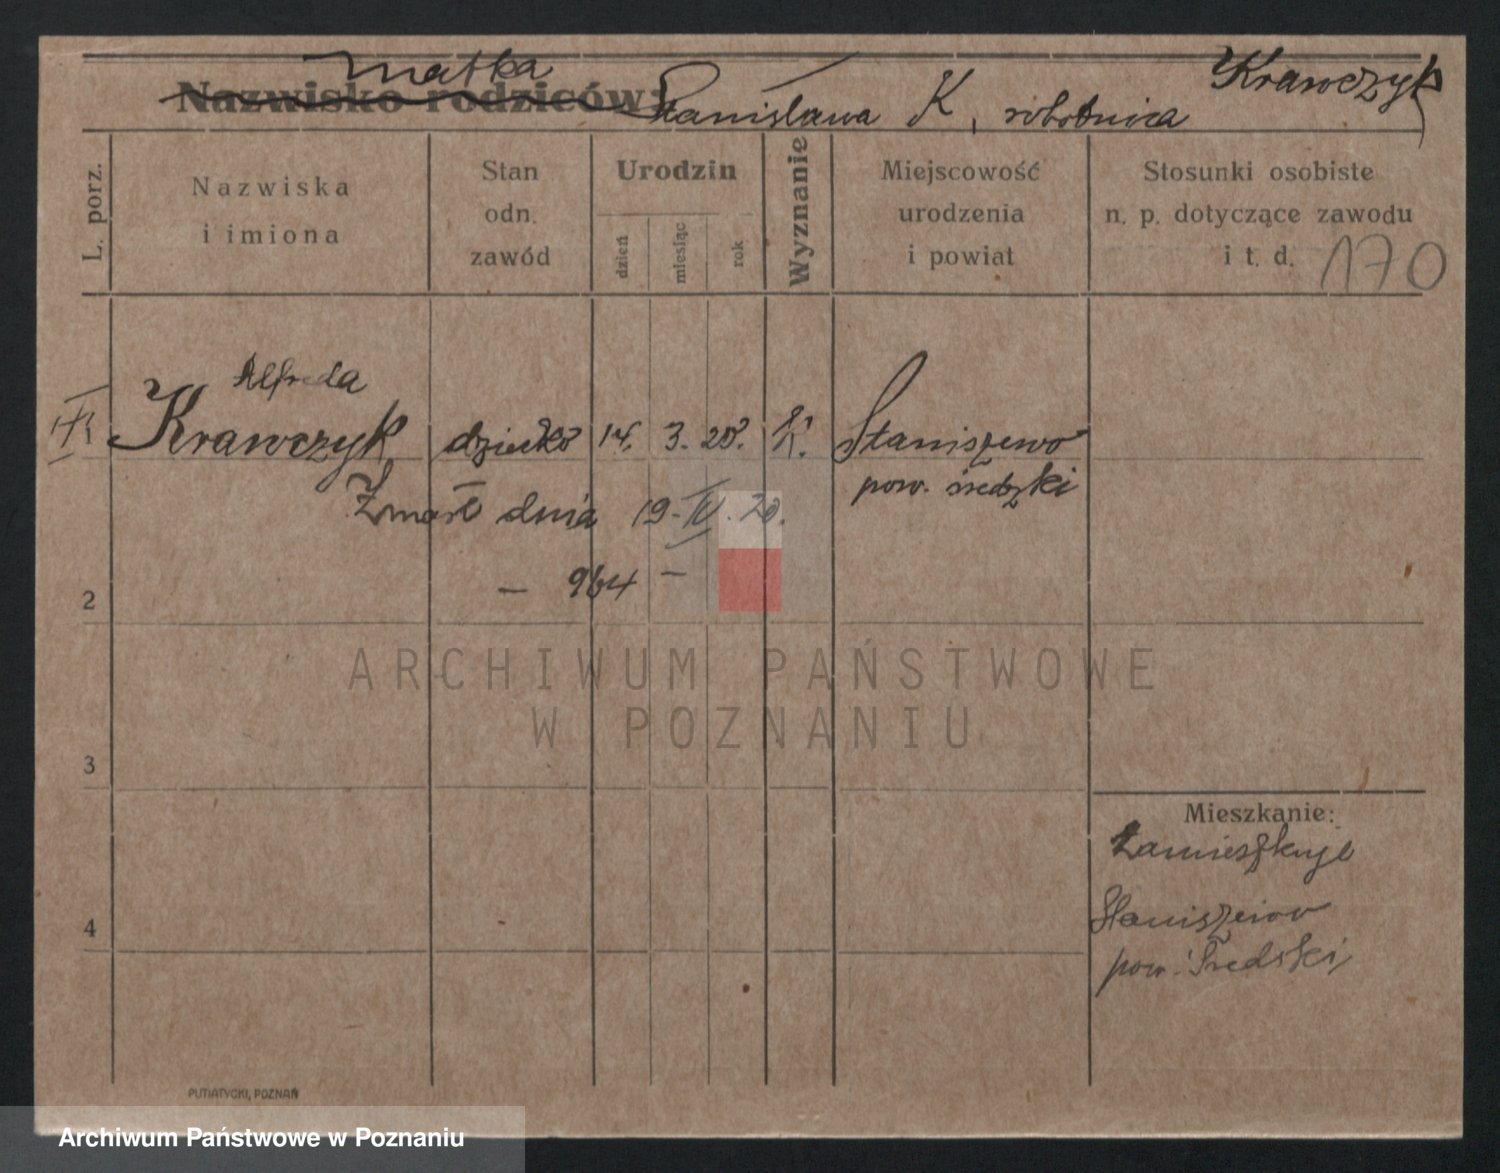 matka Krawczyk
Nazwisko rodziców: Stanisława K, robotnica
L. porz.
Nazwiska
i imiona
Stan
odn.
zawód
Urodzin
dzień
miesiąc
rok
Wyznanie
Miejscowość
urodzenia
i powiat
Stosunki osobiste
n. p. dotyczące zawodu
i t. d. 170
Alfreda
Krawczyk dziecko 14. 3. 20. K. Staniszewo
pow. średzki
Zmarł dnia 19-IV. 20.
— 964 —
2
ARCHIWUM PAŃSTWOWE
W POZNANIU
3
Mieszkanie:
Zamieszkuje
4
pow. Średzki
PUTIATYCKI, POZNAŃ
Archiwum Państwowe w Poznaniu